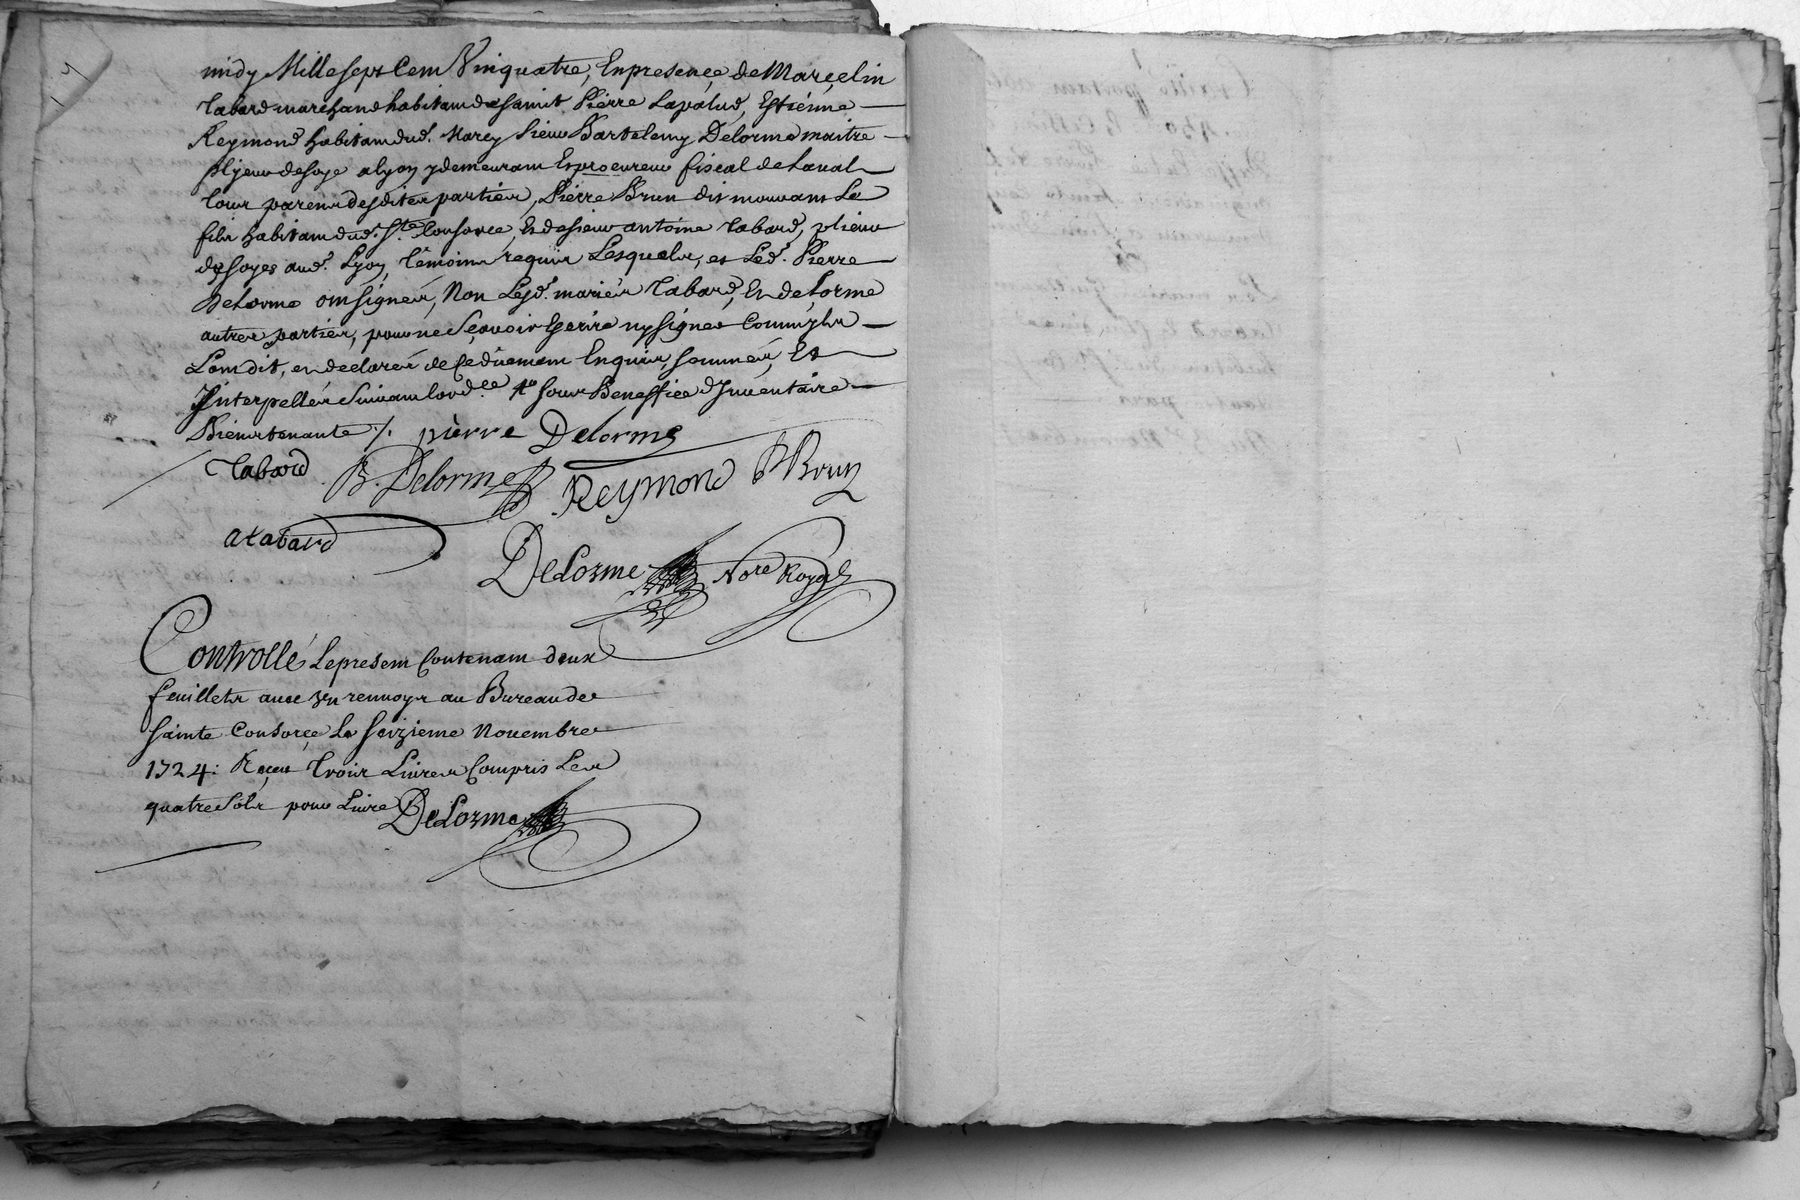 midy Mille sept Cent Vinquatre, En presence de Marcelin
Tabard marchand habitant de saint Pierre Lapalud, Estienne
Reymond habitant dud. Marcy Sieur Bartelemy Delorme maitre
plieur de soye a lyon y demeurant Et procureur fiscal de Laval
tour parens desdites parties, Pierre Brun dit mouvant Le
fils habitant dud. Ste Consorce, Et de sieur antoine Tabard, plieur
de soyes aud. Lyon, Temoins requis Lesquels, et Led. Pierre
Delorme ont signés, Non Lesd. mariés Tabard, Et delorme
autres parties, pour ne Scavoir Escrire ny signer Comm'ils
L'ont dit, et declarés de Ce düement Enquis, sommés, Et
Interpellés Suivant lord.ce sous Beneffice d'Inventaire
Bien tenante ./. pierre Delorme
Tabard B. Delorme Reymond P Brun
A tabard
Delorme No.re Royal
Controllé Le present Contenant deux
feuillets avec un renvoys au Bureau de
sainte Consorce Le seizieme Novembre
1724: Reçeu trois Livres Compris Les
quatre sols pour Livre Delorme